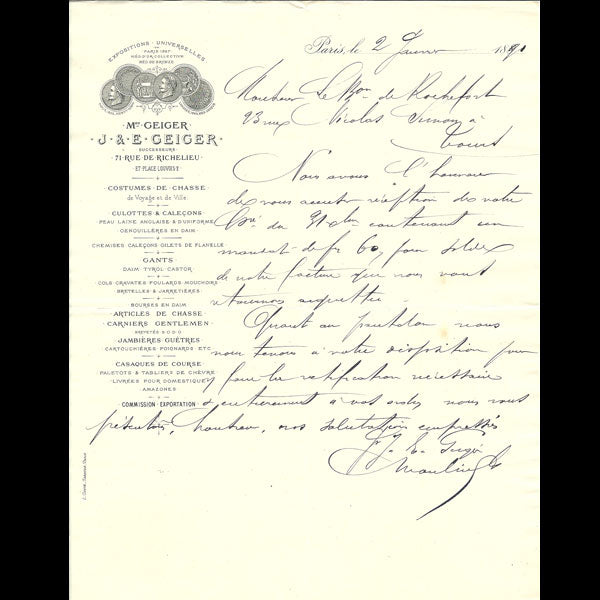 EXPOSITIONS UNIVERSELLES
PARIS 1867
MED. D'OR, COLLECTIVE
MED. DE BRONZE
Mon GEIGER
J. & E. GEIGER
SUCCESSEURS
71 RUE DE RICHELIEU
ET PLACE LOUVOIS 2
COSTUMES DE CHASSE
de Voyage et de Ville
CULOTTES & CALEÇONS
PEAU LAINE ANGLAISE & D'UNIFORME
GENOUILLÈRES EN DAIM
CHEMISES CALEÇONS GILETS DE FLANELLE
GANTS
DAIM TYROL CASTOR
COLS CRAVATES FOULARDS MOUCHOIRS
BRETELLES & JARRETIÈRES
BOURSES EN DAIM
ARTICLES DE CHASSE
CARNIERS GENTLEMEN
BREVETÉS S.G.D.G.
JAMBIÈRES GUÊTRES
CARTOUCHIÈRES POIGNARDS ETC
CASAQUES DE COURSE
PALETOTS & TABLIERS DE CHÈVRE
LIVRÉES POUR DOMESTIQUES
AMAZONES
COMMISSION EXPORTATION
Paris, le 2 Janvier 1891
Monsieur Le Bon de Rochefort
93 rue Nicolas Simon à
Tours
Nous avons l'honneur
de vous accuser réception de votre
du contenant un
mandat de fr 60, pour solde
de notre facture que nous vous
retournons acquittée.
Quant au pantalon nous
nous tenons à votre disposition pour
pour la rectification nécessaire
& entièrement à vos ordres nous vous
présentons, Monsieur, nos salutations empressées
J. E. Geiger